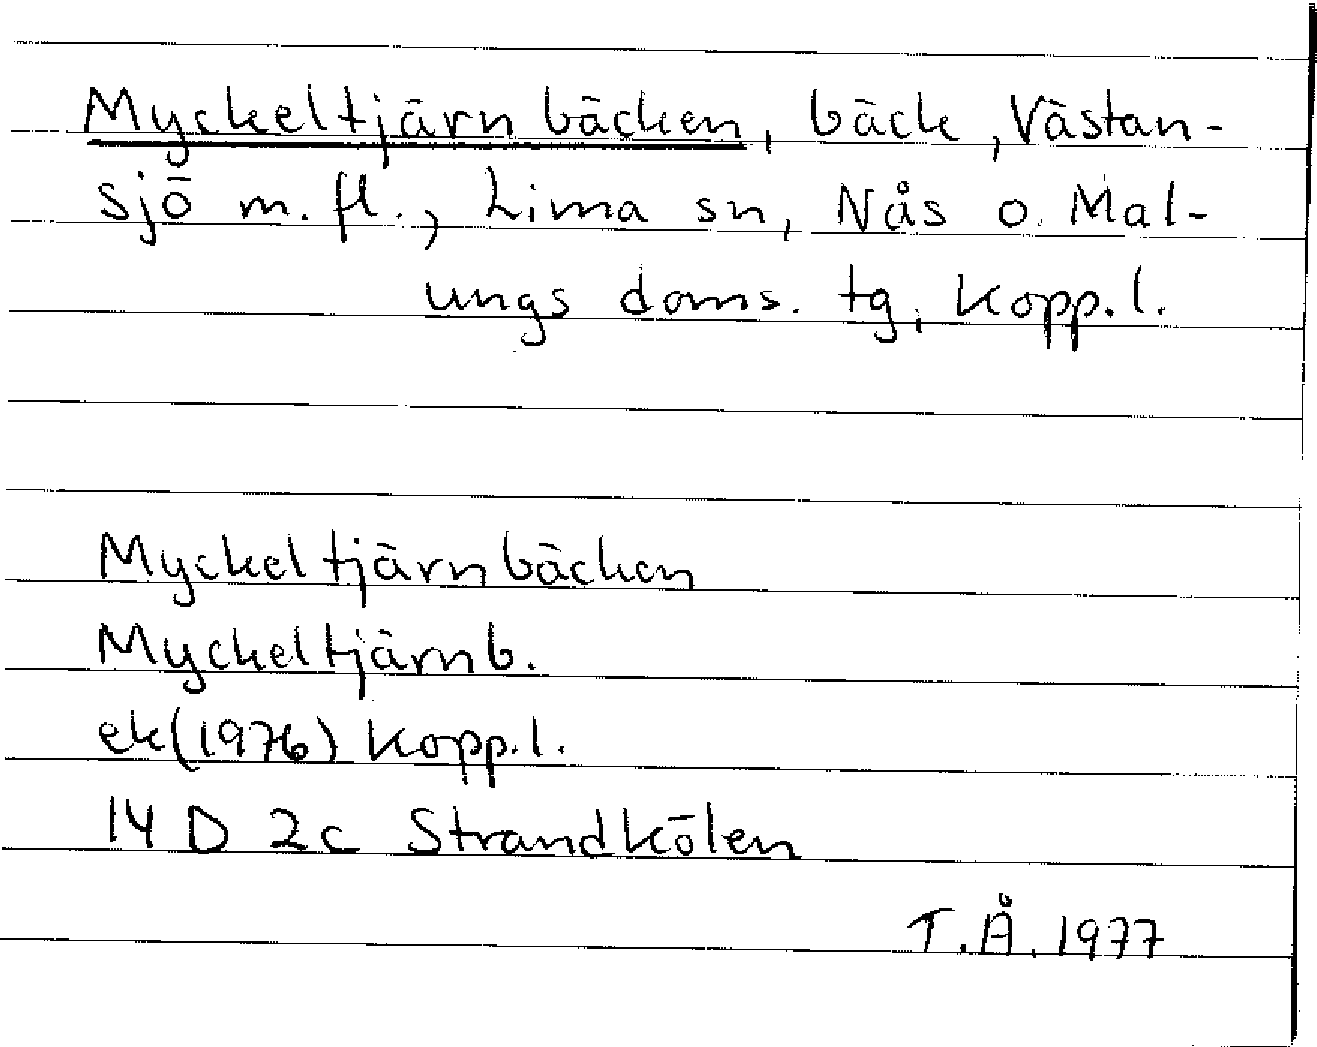 Myckeltjärnbäcken, bäck, Västan-
sjö m. fl., Lima sn, Nås o. Mal-
ungs doms. tg, Kopp. l.
Myckeltjärnbäcken
Myckeltjärnb.
ek(1976) Kopp. l.
14 D 2c Strandkölen
T.Å. 1977